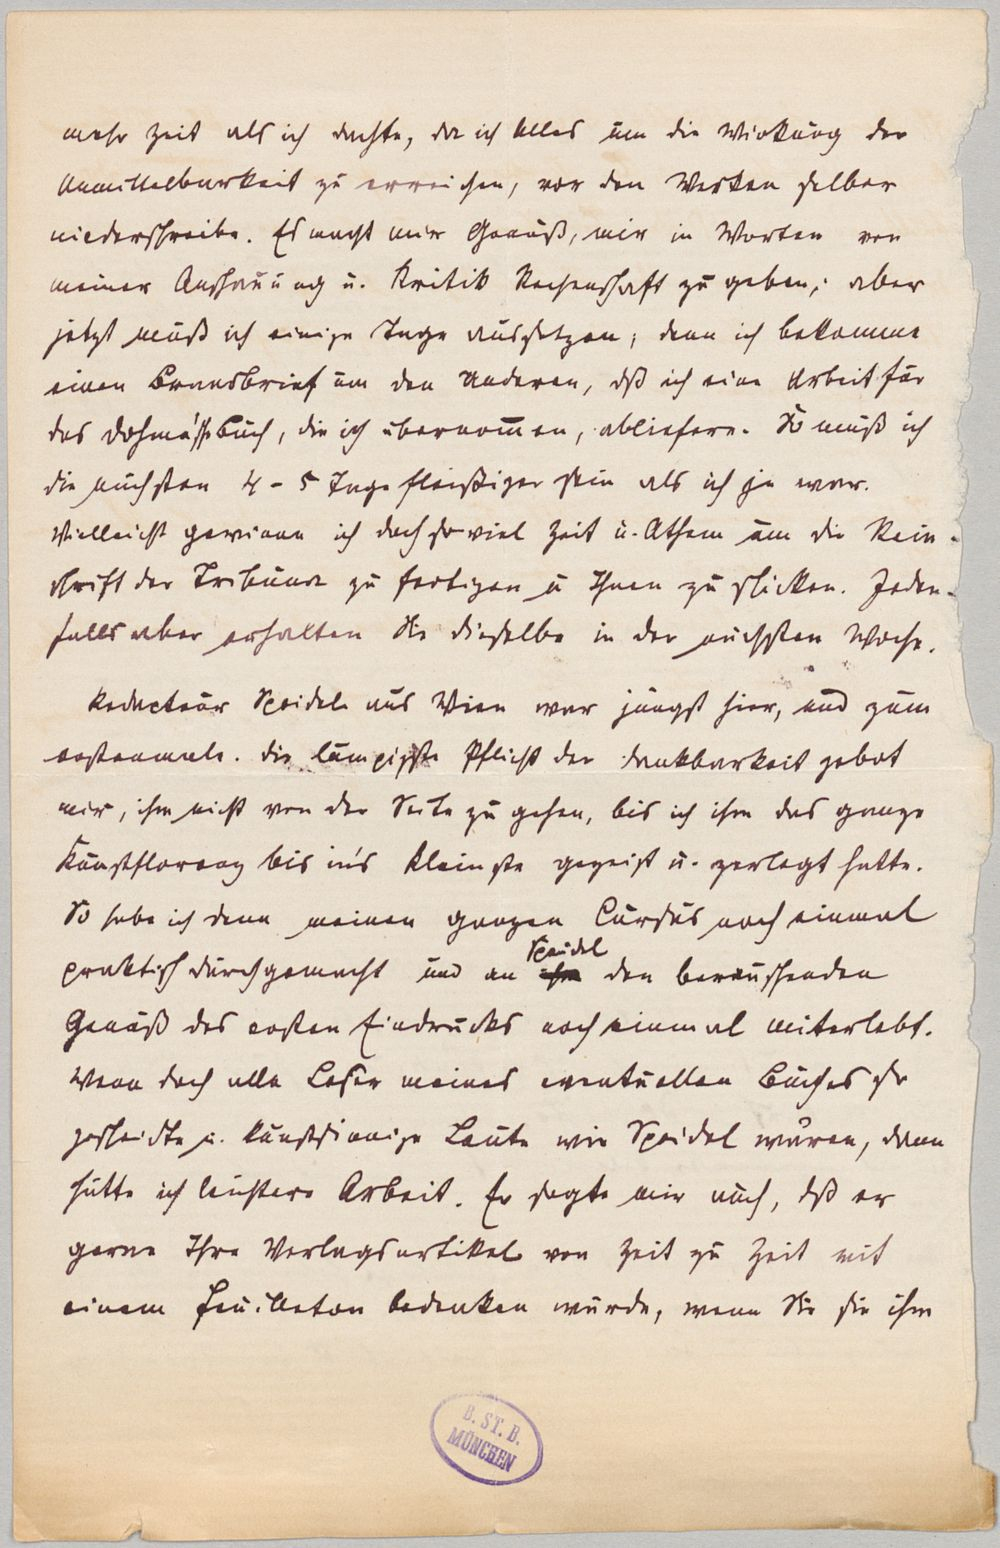 mehr Zeit als ich dachte, da ich Alles um die Wirkung der
Unmittelbarkeit zu erreichen, vor den Werken selber
niederschreibe. Es macht mir Genuß, mir in Worten von
meiner Anschauung u. Kritik Rechenschaft zu geben; aber
jetzt muß ich einige Tage aussetzen; denn ich bekomme
einen Brandbrief um den Anderen, dß ich eine Arbeit für
das Buch, die ich übernom̅en, abliefere. So muß ich
die nächsten 4 - 5 Tage fleißiger sein als ich je war.
Vielleicht gewinne ich doch so viel Zeit u. Athem um die Rein-
schrift der Tribuna zu fertigen u Ihnen zu schicken. Jeden-
falls aber erhalten Sie dieselbe in der nächsten Woche.
Redacteur Speidel aus Wien war jüngst hier, und zum
erstenmale. Die lumpigste Pflicht der Dankbarkeit gebot
mir, ihm nicht von der Seite zu gehen, bis ich ihm das ganze
Kunstflorenz bis in's Kleinste gezeigt u. zerlegt hatte.
So habe ich denn meinen ganzen Cursus noch einmal
praktisch durchgemacht und an Speidel den berauschenden
Genuß des ersten Eindrucks noch einmal miterlebt.
Wenn doch alle Leser meines eventuellen Buches so
gescheidte u. kunstsinnige Leute wie Speidel wären, dann
hätte ich leichtere Arbeit. Er sagte mir auch, dß er
gerne Ihre Verlagsartikel von Zeit zu Zeit mit
einem Feuilleton bedenken würde, wenn Sie sie ihm
B. ST. B.
MÜNCHEN